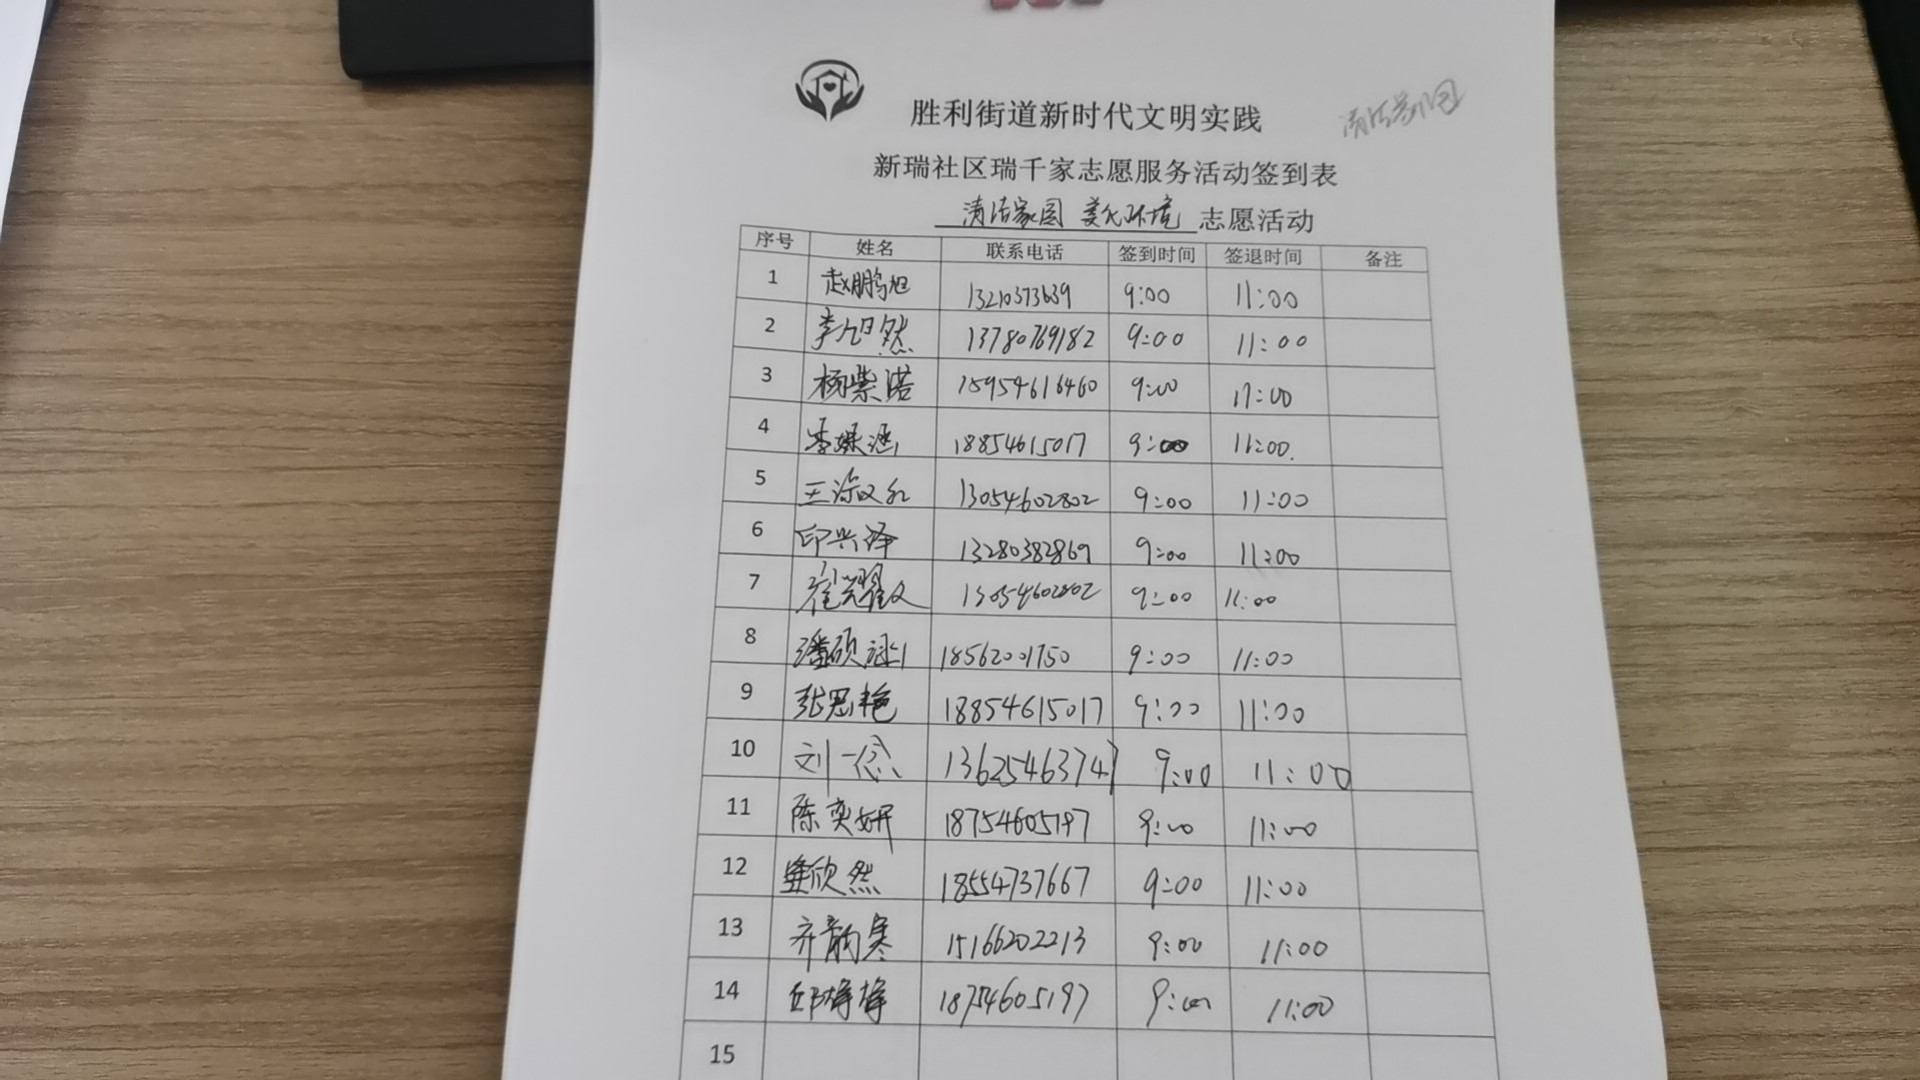 胜利街道新时代文明实践
清洁家园
新瑞社区瑞千家志愿服务活动签到表
清洁家园 美化环境 志愿活动
序号 姓名 联系电话 签到时间 签退时间 备注
1 赵鹏旭 13210373639 9:00 11:00
2 李旭然 13780769182 9:00 11:00
3 杨紫诺 15954616460 9:00 11:00
4 李 涵 18854615017 9:00 11:00.
5 王 13054602802 9:00 11:00
6 印兴泽 13280382869 9:00 11:00
7 崔耀文 13054602802 9:00 11:00
8 潘硕 18562001750 9:00 11:00
9 张思艳 18854615017 9:00 11:00
10 刘一念 13625463747 9:00 11:00
11 陈奕妍 18754605197 9:00 11:00
12 欣然 18554737667 9:00 11:00
13 齐韵寒 15166202213 9:00 11:00
14 邱梓梓 18754605197 9:00 11:00
15